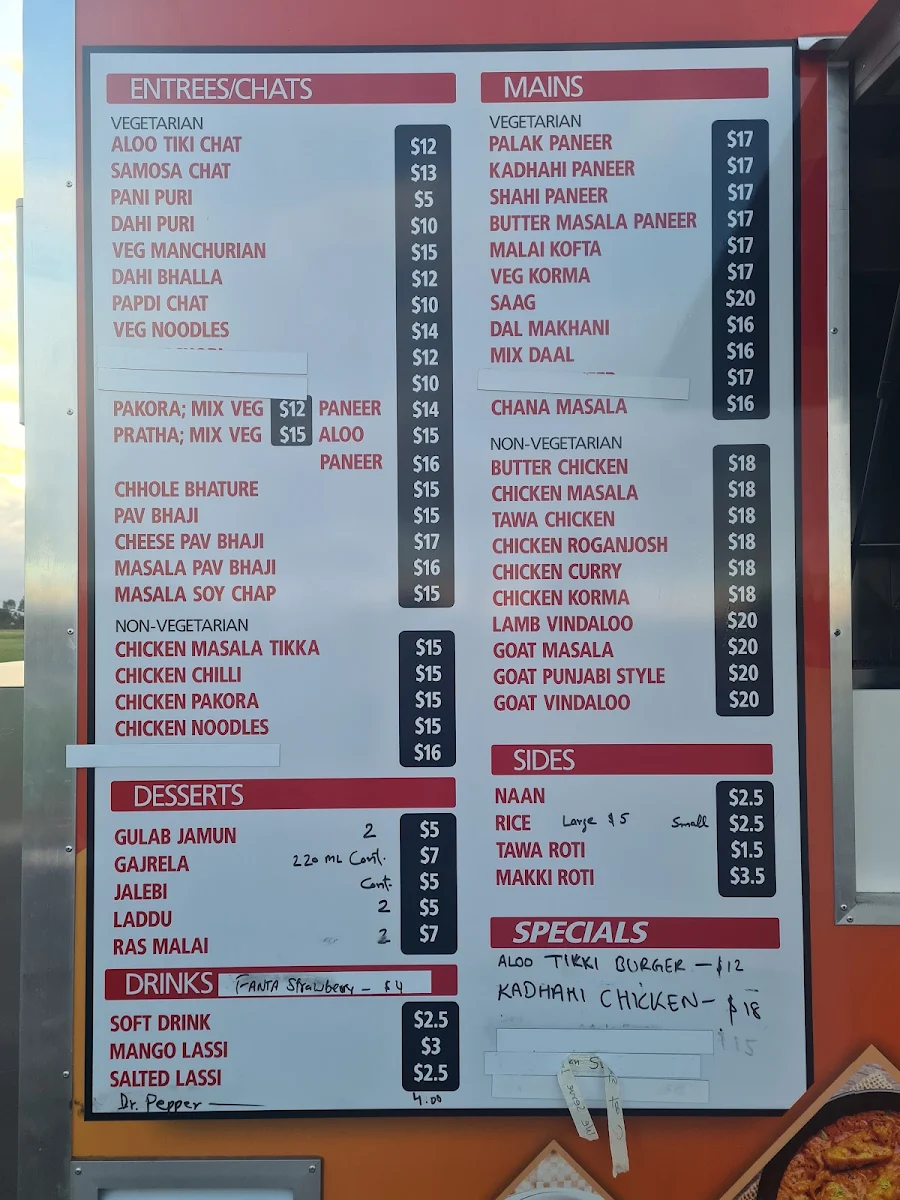 ENTREES/CHATS
VEGETARIAN
ALOO TIKI CHAT $12
SAMOSA CHAT $13
PANI PURI $5
DAHI PURI $10
VEG MANCHURIAN $15
DAHI BHALLA $12
PAPDI CHAT $10
VEG NOODLES $14
$12
$10
PAKORA; MIX VEG $12 PANEER $14
PRATHA; MIX VEG $15 ALOO $15
PANEER $16
CHHOLE BHATURE $15
PAV BHAJI $15
CHEESE PAV BHAJI $17
MASALA PAV BHAJI $16
MASALA SOY CHAP $15
NON-VEGETARIAN
CHICKEN MASALA TIKKA $15
CHICKEN CHILLI $15
CHICKEN PAKORA $15
CHICKEN NOODLES $15
$16
DESSERTS
GULAB JAMUN 2 $5
GAJRELA 220 ML Cont. $7
JALEBI Cont. $5
LADDU 2 $5
RAS MALAI 2 $7
DRINKS FANTA Strawberry - $4
SOFT DRINK $2.5
MANGO LASSI $3
SALTED LASSI $2.5
Dr. Pepper 4.00
MAINS
VEGETARIAN
PALAK PANEER $17
KADHAHI PANEER $17
SHAHI PANEER $17
BUTTER MASALA PANEER $17
MALAI KOFTA $17
VEG KORMA $17
SAAG $20
DAL MAKHANI $16
MIX DAAL $16
$17
CHANA MASALA $16
NON-VEGETARIAN
BUTTER CHICKEN $18
CHICKEN MASALA $18
TAWA CHICKEN $18
CHICKEN ROGANJOSH $18
CHICKEN CURRY $18
CHICKEN KORMA $18
LAMB VINDALOO $20
GOAT MASALA $20
GOAT PUNJABI STYLE $20
GOAT VINDALOO $20
SIDES
NAAN $2.5
RICE Large $5 Small $2.5
TAWA ROTI $1.5
MAKKI ROTI $3.5
SPECIALS
ALOO TIKKI BURGER - $12
KADHAHI CHICKEN - $18
$15